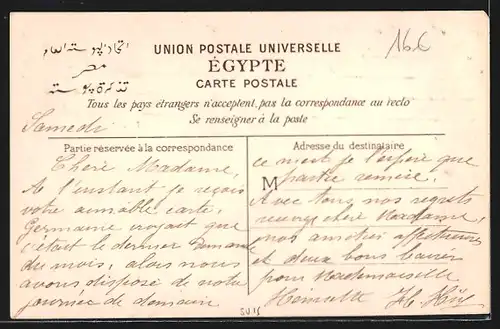 UNION POSTALE UNIVERSELLE
ÉGYPTE
CARTE POSTALE
اتحاد بوسته العام
مصر
تذكرة بوسته
166
Tous les pays étrangers n'acceptent pas la correspondance au recto
Se renseigner à la poste
Samedi
Partie réservée à la correspondance
Chère Madame,
A l'instant je reçois
votre aimable carte.
Germaine croyait que
c'était le dernier Dimanche
du mois, alors nous
avons disposé de notre
journée de demain
SV15
Adresse du destinataire
M
ce n'est je l'espère que
partie remise.
Avec tous nos regrets
recevez chère Madame,
nos amitiés affectueuses
et deux bons baisers
pour Mademoiselle
Henriette